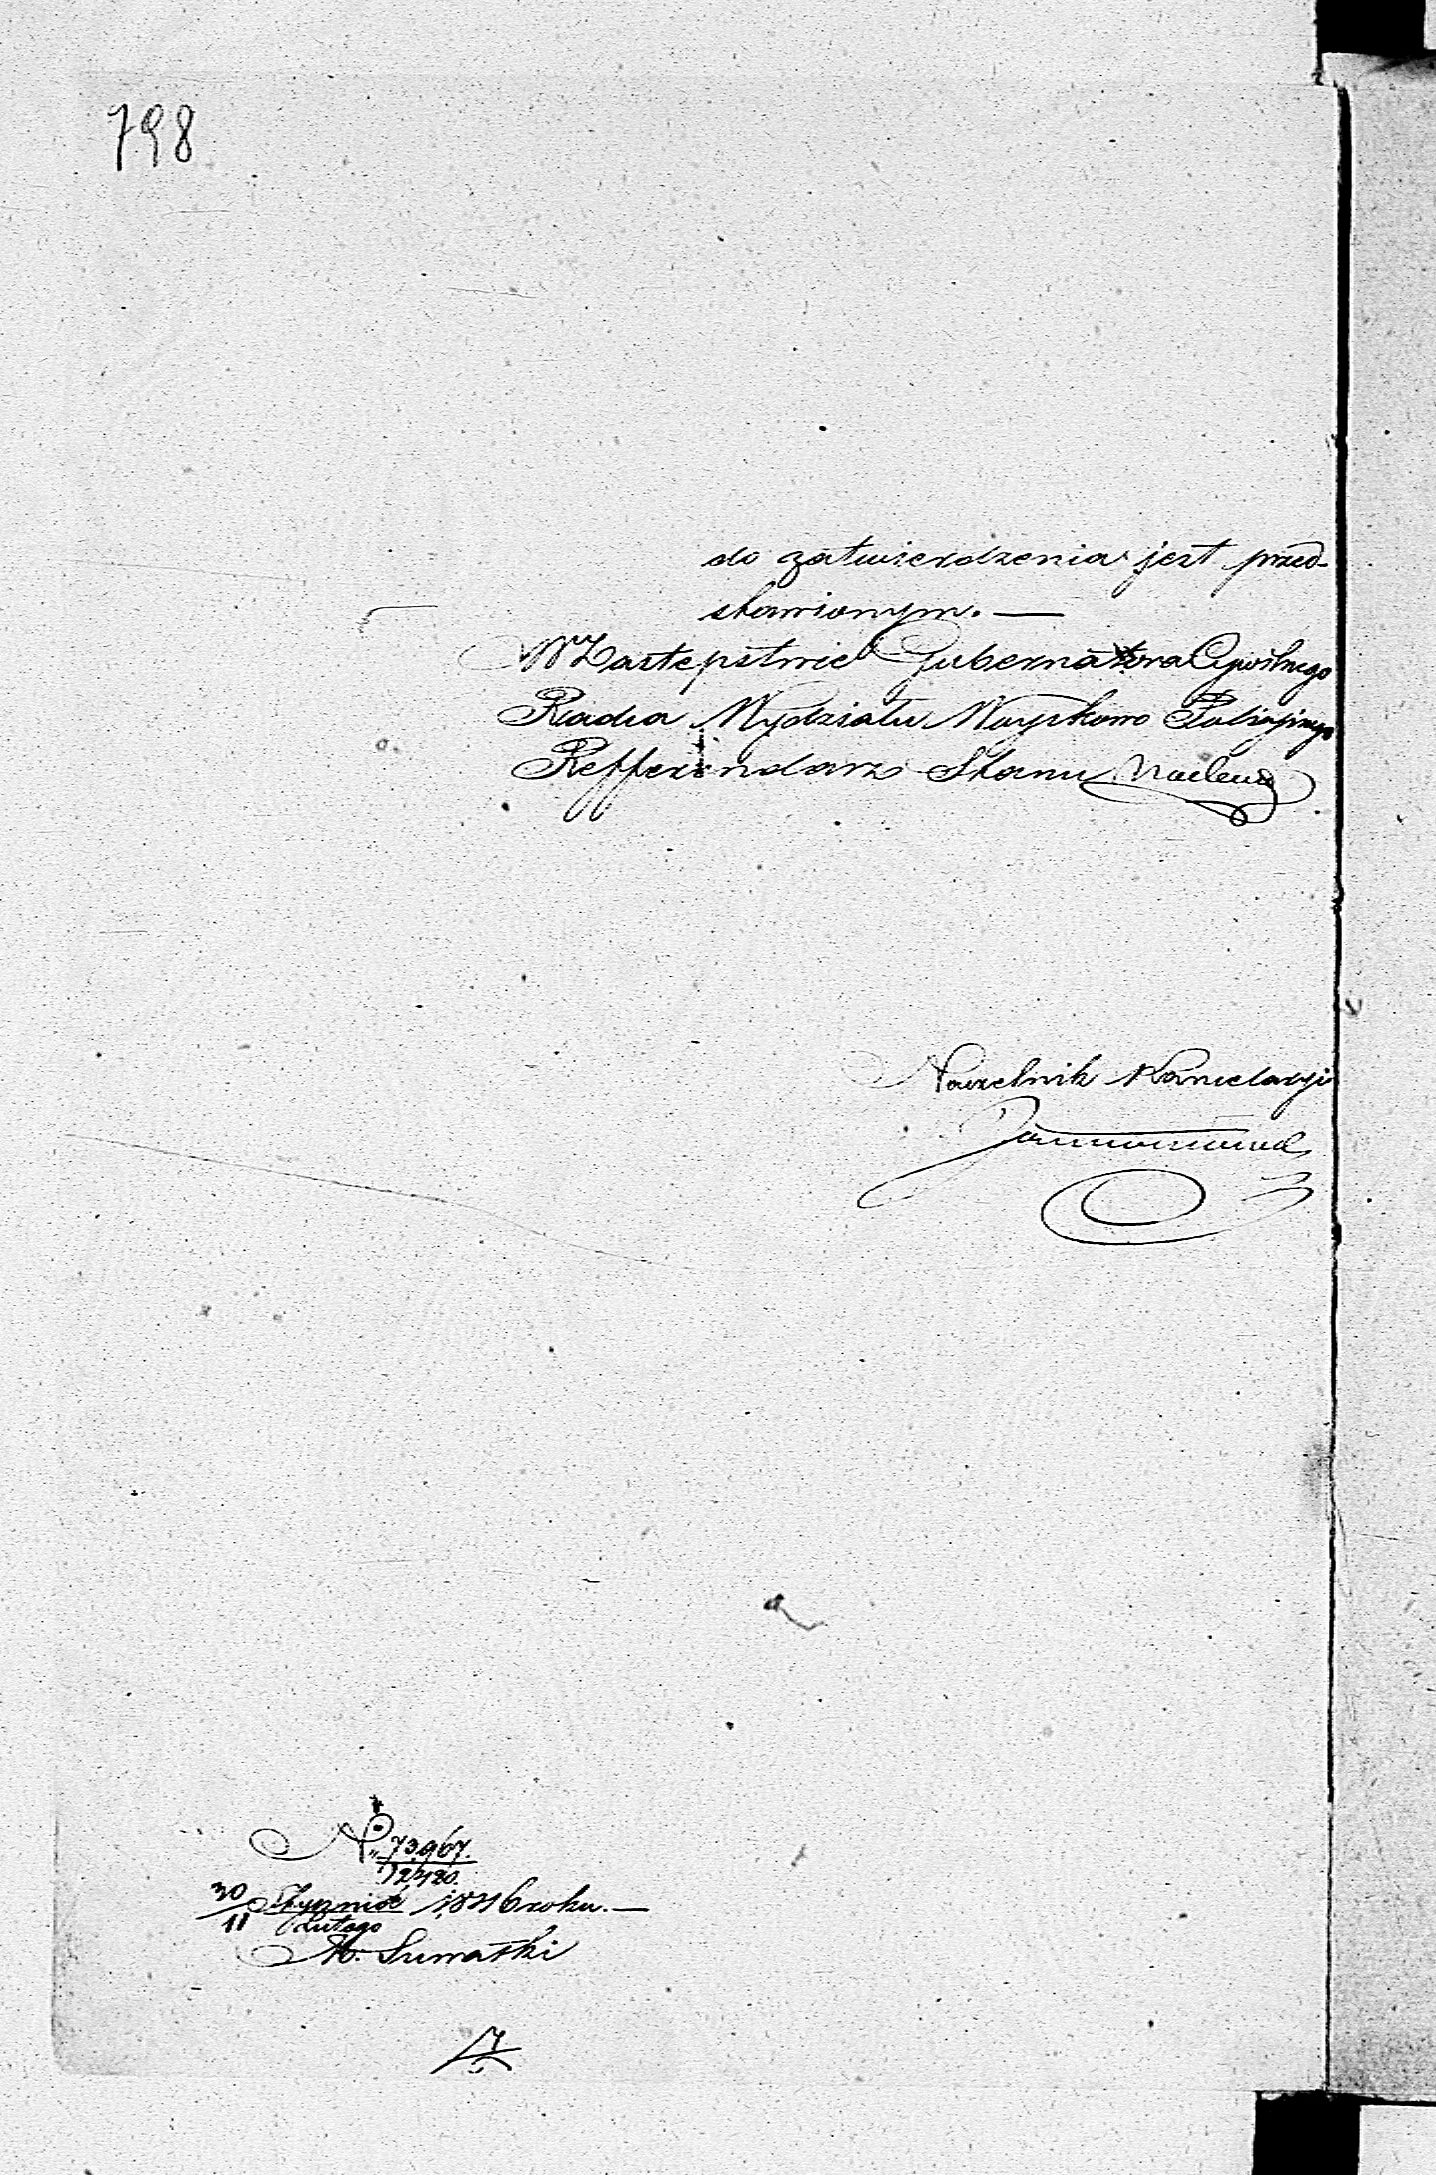 798
do zatwierdzenia jest przed-
stawionym. —
W Zastępstwie Gubernatora Cywilnego
Radca Wydziału Woyskowo Policyjnego
Refferendarz Stanu
Naczelnik Kancelaryi
No 73967.
12420.
30/11 Stycznia/Lutego 1846 roku. —
M. Suwalski